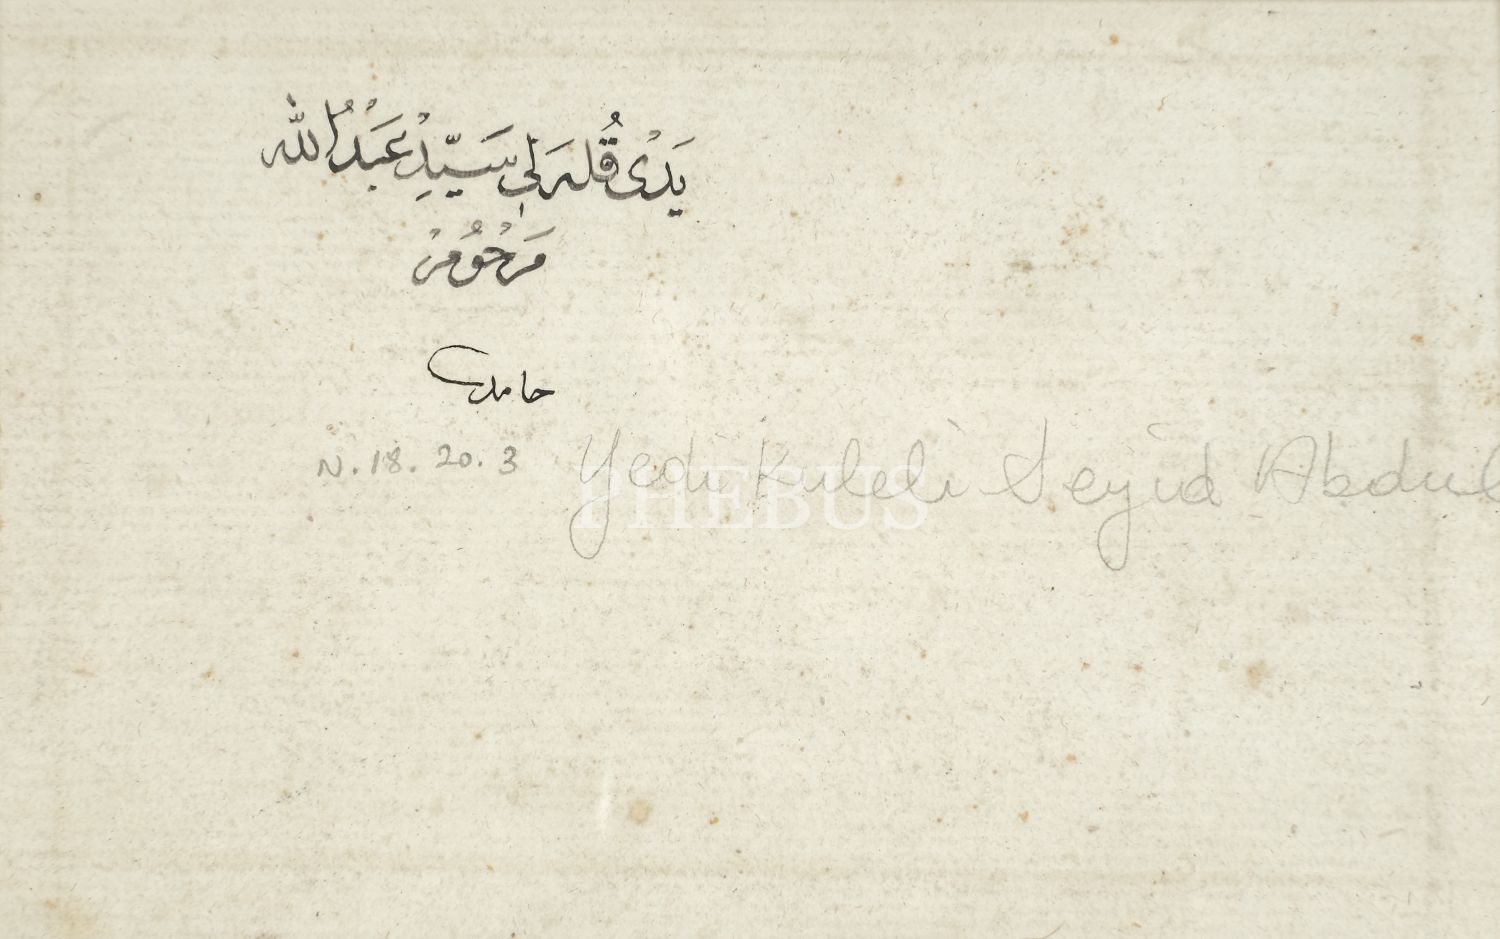 يَدْى قُلهَ لى سَيِّدْ عَبْدُ اللّٰه
مَرْحُوُمْ
حامد
N. 18. 20. 3
Yedi Kuleli Seyid Abdul
PHEBUS